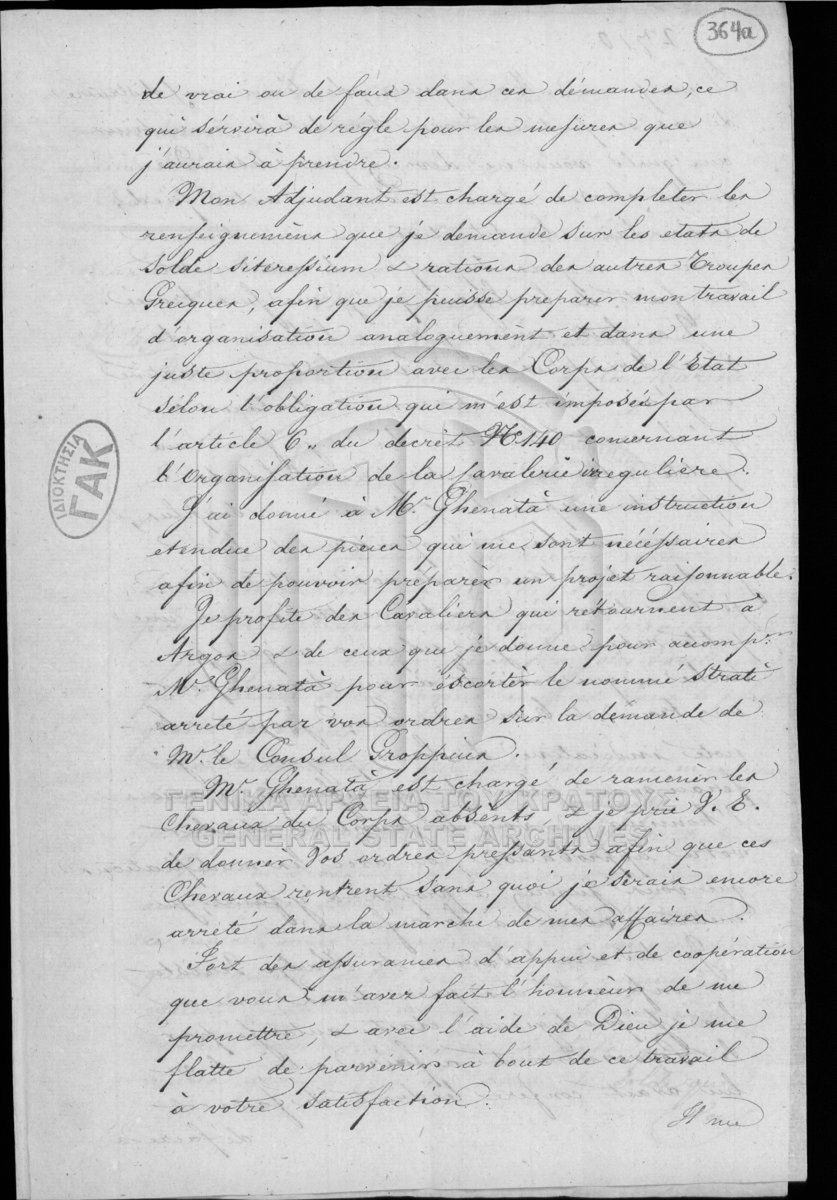 364a
de vrai ou de faux dans ces démandes, ce
qui sérvirà de régle pour les mesures que
j'aurais à prendre.
Mon Adjudant est chargé de completer les
renseignemens que je demande sur les etats de
solde siteressium & rations des autres Troupes
Grecques, afin que je puisse preparer mon travail
d'organisation analoguement et dans une
juste proportion avec les Corps de l'Etat
sélon l'obligation qui m'est imposés par
l'article 6,, du decrét No 140 concernant
l'Organisation de la Cavalerie irreguliere.
J'ai donné à Mr Ghenatà une instruction
etendue des pieces qui me sont nécéssaires
afin de pouvoir preparèr un projet raisonnable.
Je profite des Cavaliers qui rétournent à
Argos & de ceux que je donne pour acompr
Mr Ghenatà pour éscortèr le nommé Strati
arreté par vos ordres sur la demande de
Mr le Consul Groppius.
Mr Ghenatà est chargé de ramenèr les
Chevaux du Corps absénts, & je prie V. E.
de donnèr Vos ordres pressants afin que ces
Chevaux rentrent sans quoi je sérais encore
arrété dans la marche de mes affaires.
Fort des assurances d'appui et de coopération
que vous m'avez fait l'honneur de me
promettre, & avec l'aide de Dieu je me
flatte de parvenir à bout de ce travail
à votre satisfaction.
Il me
ΙΔΙΟΚΤΗΣΙΑ
ΓΑΚ
ΓΕΝΙΚΑ ΑΡΧΕΙΑ ΤΟΥ ΚΡΑΤΟΥΣ
GENERAL STATE ARCHIVES